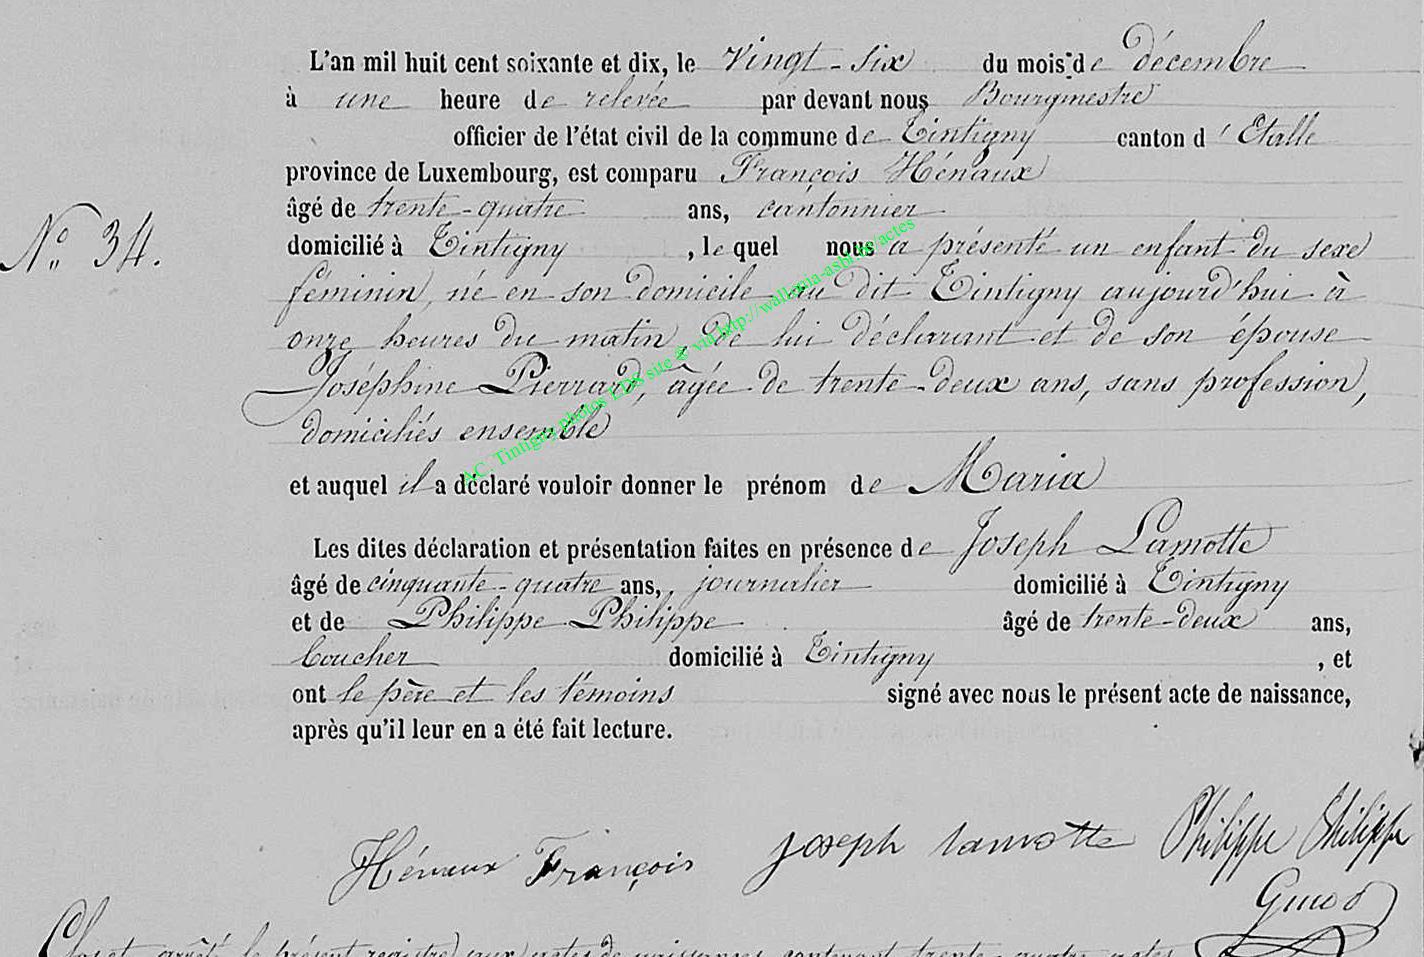 L'an mil huit cent soixante et dix, le vingt-six du mois de décembre
à une heure de relevée par devant nous Bourgmestre
officier de l'état civil de la commune de Tintigny canton d'Etalle
province de Luxembourg, est comparu François Hénaux
âgé de trente-quatre ans, cantonnier
N° 34.
domicilié à Tintigny, lequel nous a présenté un enfant du sexe
féminin, né en son domicile au dit Tintigny aujourd'hui à
onze heures du matin, de lui déclarant et de son épouse
Joséphine Pierrard, âgée de trente-deux ans, sans profession,
domiciliés ensemble
et auquel il a déclaré vouloir donner le prénom de Maria
Les dites déclaration et présentation faites en présence de Joseph Lamotte
âgé de cinquante-quatre ans, journalier domicilié à Tintigny
et de Philippe Philippe âgé de trente-deux ans,
boucher domicilié à Tintigny, et
ont le père et les témoins signé avec nous le présent acte de naissance,
après qu'il leur en a été fait lecture.
Hénaux François Joseph Lamotte Philippe Philippe
Clos et arrêté le présent registre aux actes de naissances contenant trente-quatre actes
AC. Tintigny photos EDS site © via http://wallonia-asbl.be/actes